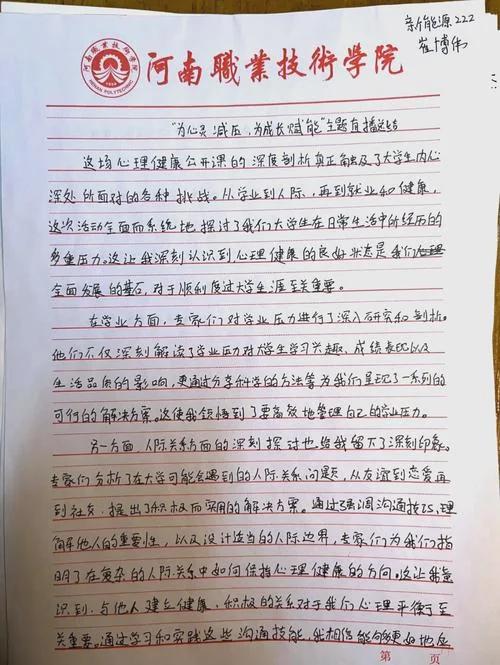 新能源222
崔博伟
河南職業技術學院
HENAN POLYTECHNIC
"为心灵减压,为成长赋能"主题直播总结
这场心理健康公开课的深度剖析真正触及了大学生内心
深处所面对的各种挑战。从学业到人际,再到就业和健康,
这次活动全面而系统地探过了我们大学生在日常生活中所经历的
多重压力。这让我深刻认识到心理健康的良好状态是我们
全面发展的基石,对于顺利度过大学生涯至关重要。
在学业方面,专家们对学业压力进行了深入研究和剖析。
他们不仅深刻解读了学业压力对大学生学习兴趣、成绩表现以及
生活品质的影响,更通过分享科学的方法等为我们呈现了一系列的
可行的解决方案。这使我领悟到了要高效地管理自己的学业压力。
另一方面,人际关系方面的深刻探讨也给我留下了深刻印象。
专家们分析了在大学可能会遇到的人际关系问题,从友谊到恋爱再
到社交,提出了积极而实用的解决方案。通过强调沟通技巧,理
解他人的重要性,以及设计适当的人际边界,专家们为我们指
明了在复杂的人际关系中如何保持心理健康的方向。这让我意
识到,与他人建立健康、积极的关系对于我们心理平衡于至
关重要。通过学习和实践这些沟通技能,我相信能够更好地应
第 页